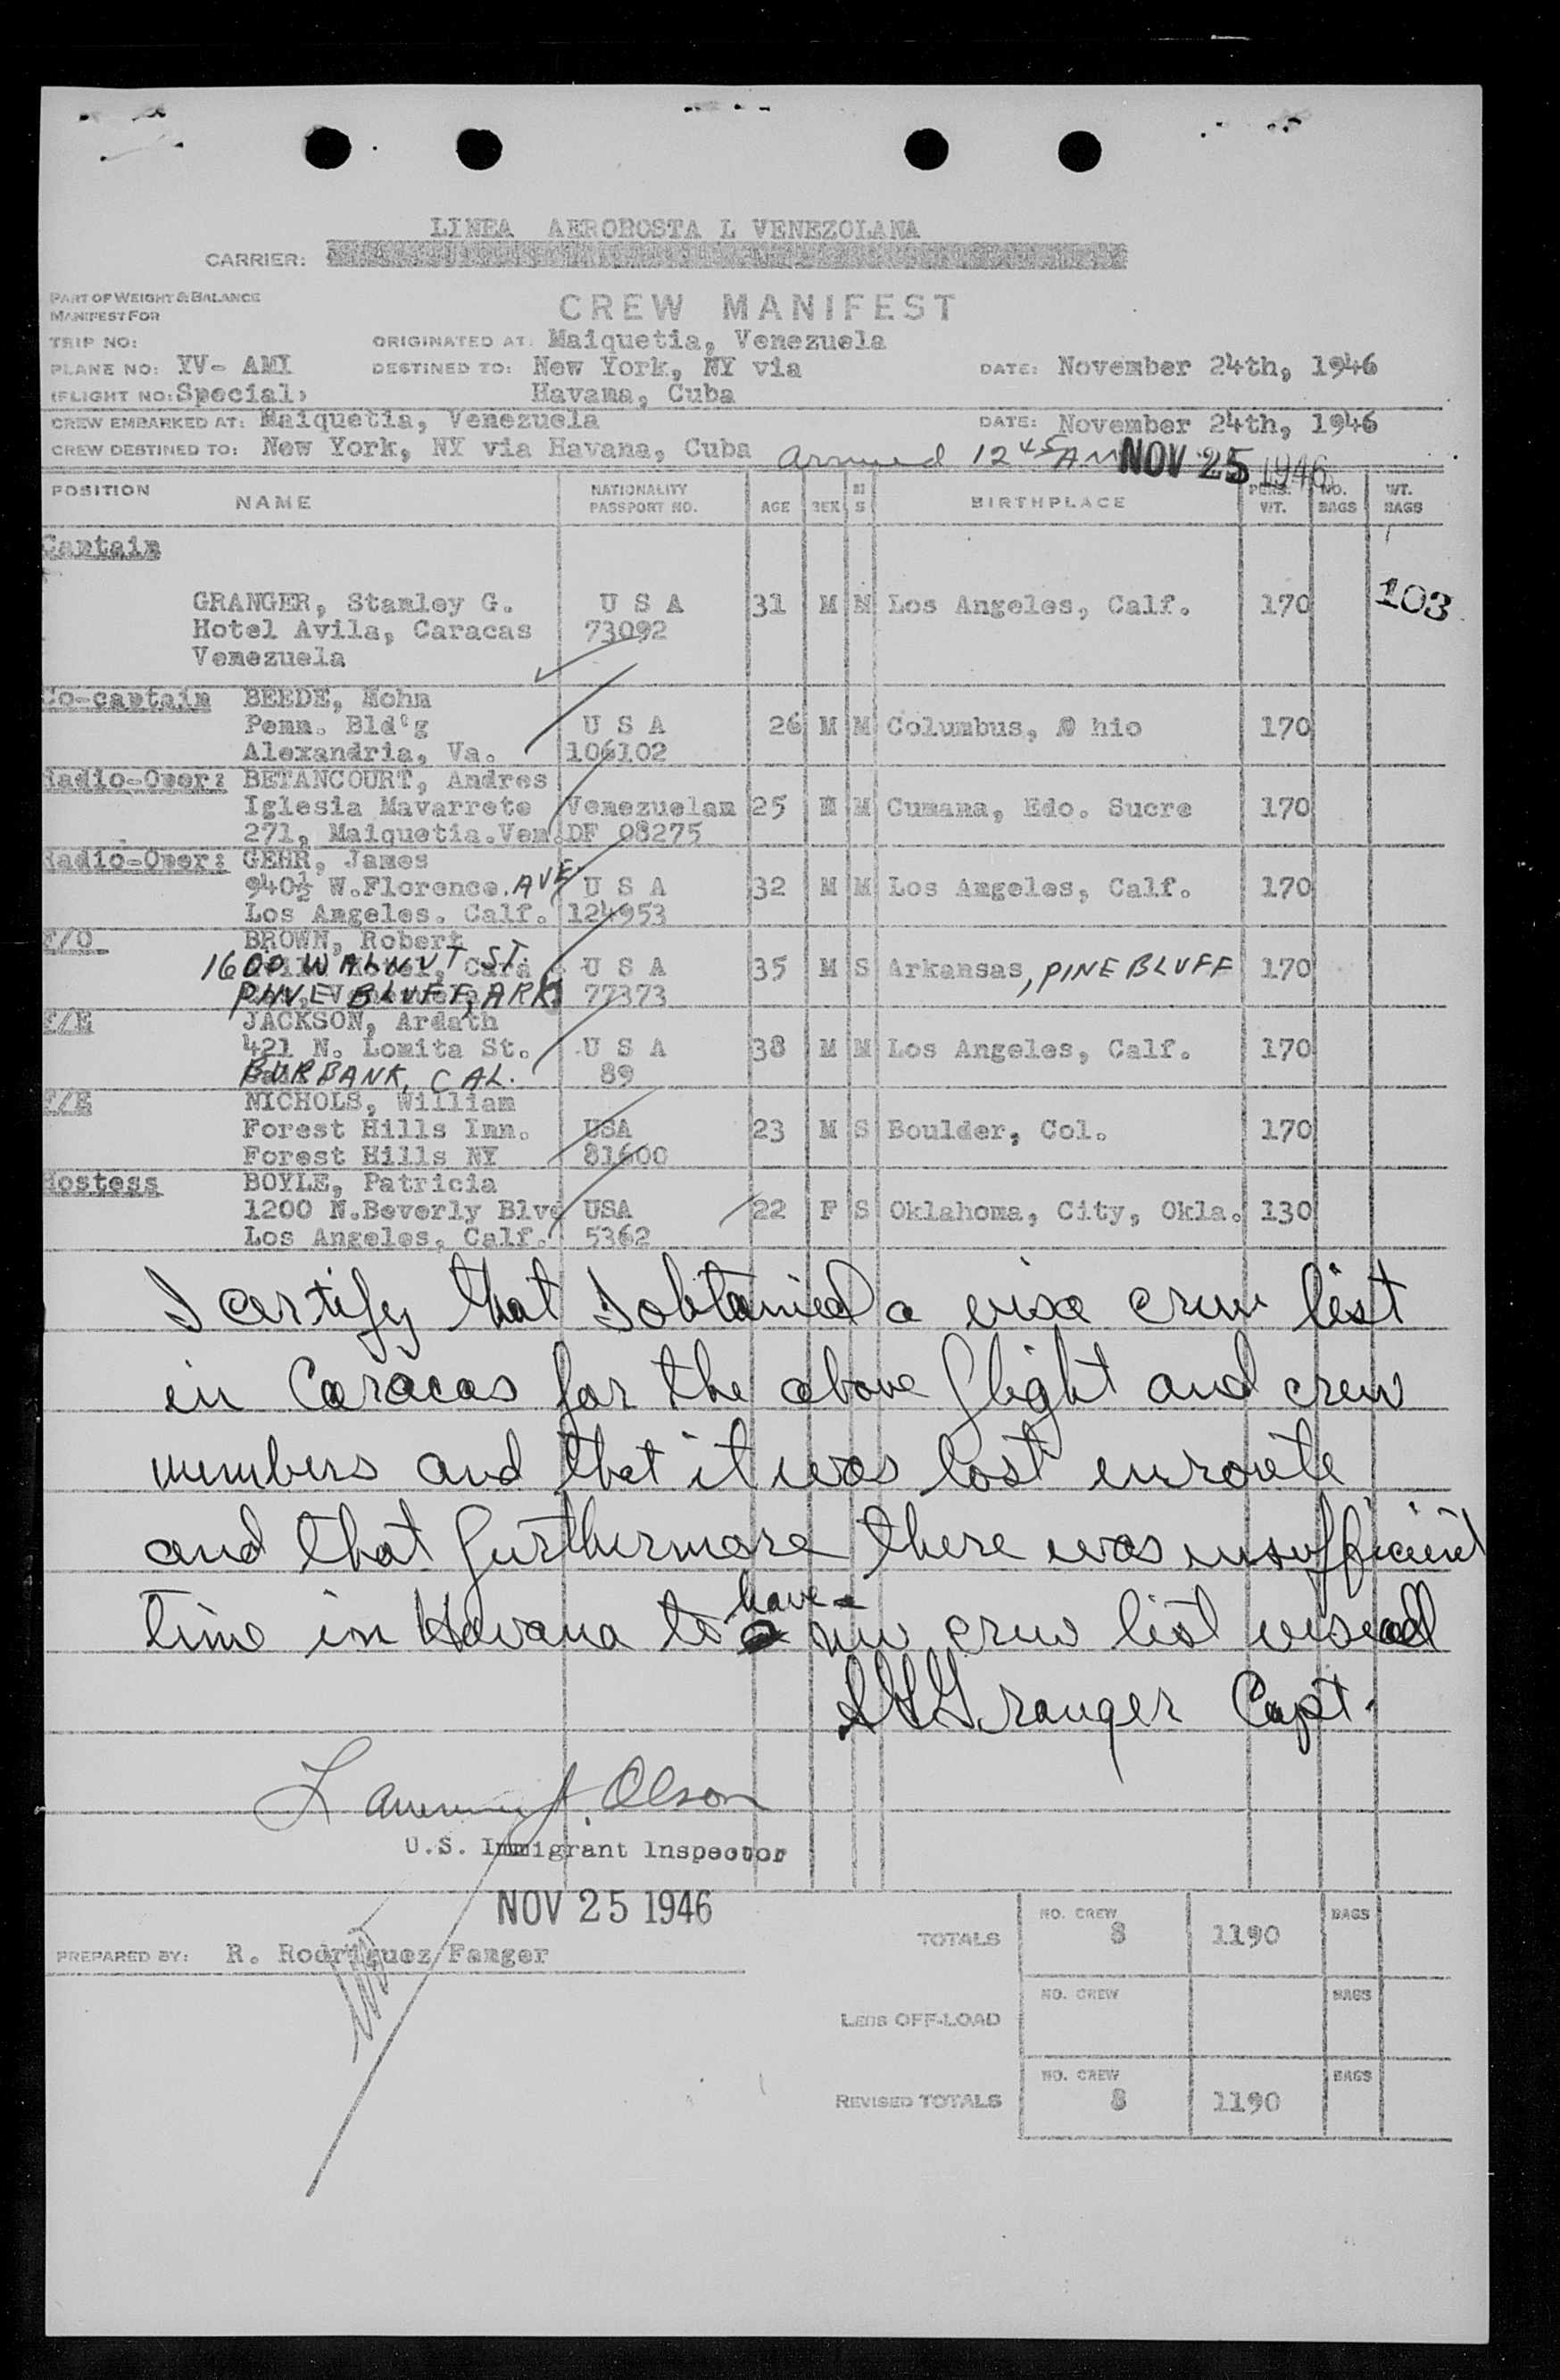 LINEA AEROPOSTA L VENEZOLANA
CARRIER:
PART OF WEIGHT & BALANCE
MANIFEST FOR
CREW MANIFEST
TRIP NO: ORIGINATED AT: Maiquetia, Venezuela
PLANE NO: YV- AMI DESTINED TO: New York, NY via DATE: November 24th, 1946
(FLIGHT NO: Special) Havana, Cuba
CREW EMBARKED AT: Maiquetia, Venezuela DATE: November 24th, 1946
CREW DESTINED TO: New York, NY via Havana, Cuba arrived 12 45 AM NOV 25 1946
POSITION NAME NATIONALITY PASSPORT NO. AGE SEX M S BIRTHPLACE PERS. WT. NO. BAGS WT. BAGS
Captain
GRANGER, Stanley G. U S A 31 M M Los Angeles, Calf. 170 103
Hotel Avila, Caracas 73092
Venezuela
Co-captain BEEDE, Mohn
Penn. Bld'g U S A 26 M M Columbus, O hio 170
Alexandria, Va. 106102
Radio-Oper: BETANCOURT, Andres
Iglesia Mavarrete Venezuelan 25 M M Cumana, Edo. Sucre 170
271, Maiquetia.Ven. DF 08275
Radio-Oper: GEHR, James
940½ W.Florence. AVE U S A 32 M M Los Angeles, Calf. 170
Los Angeles. Calf. 124953
F/O BROWN, Robert
1600 WALNUT ST. U S A 35 M S Arkansas, PINE BLUFF 170
PINE BLUFF, ARK 77373
F/E JACKSON, Ardath
421 N. Lomita St. U S A 38 M M Los Angeles, Calf. 170
BURBANK, CAL. 89
F/E NICHOLS, William
Forest Hills Inn. USA 23 M S Boulder, Col. 170
Forest Hills NY 81600
Hostess BOYLE, Patricia
1200 N.Beverly Blvd USA 22 F S Oklahoma, City, Okla. 130
Los Angeles, Calf. 5362
I certify that I obtained a visa crew list
in Caracas for the above flight and crew
members and that it was lost enroute
and that furthermore there was insufficient
time in Havana to have a new crew list visaed
S G Granger Capt.
Olson
U.S. Immigrant Inspector
NOV 25 1946
PREPARED BY: R. Rodriguez Fanger
TOTALS NO. CREW 8 1190 BAGS
LESS OFF-LOAD NO. CREW BAGS
REVISED TOTALS NO. CREW 8 1190 BAGS